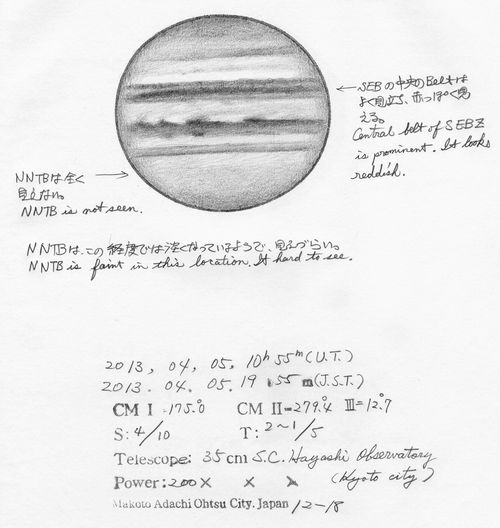 SEBの中央のBeltは
よく目立ち、赤っぽく見
える。
Central belt of SEBZ
is prominent. It looks
reddish.
NNTBは全く
見えない。
NNTB is not seen.
NNTBは、この経度では淡くなっているようで、見えづらい。
NNTB is faint in this location. It hard to see.
2013, 04, 05, 10h 55m (U.T.)
2013. 04. 05. 19 55 m(J.S.T.)
CM I =175.°0 CM II=279.°4 III=12.°7
S: 4/10 T: 2~1/5
Telescope: 35cm S.C. Hayashi Observatory
Power: 200× × × (Kyoto city)
Makoto Adachi Ohtsu City. Japan 12-18